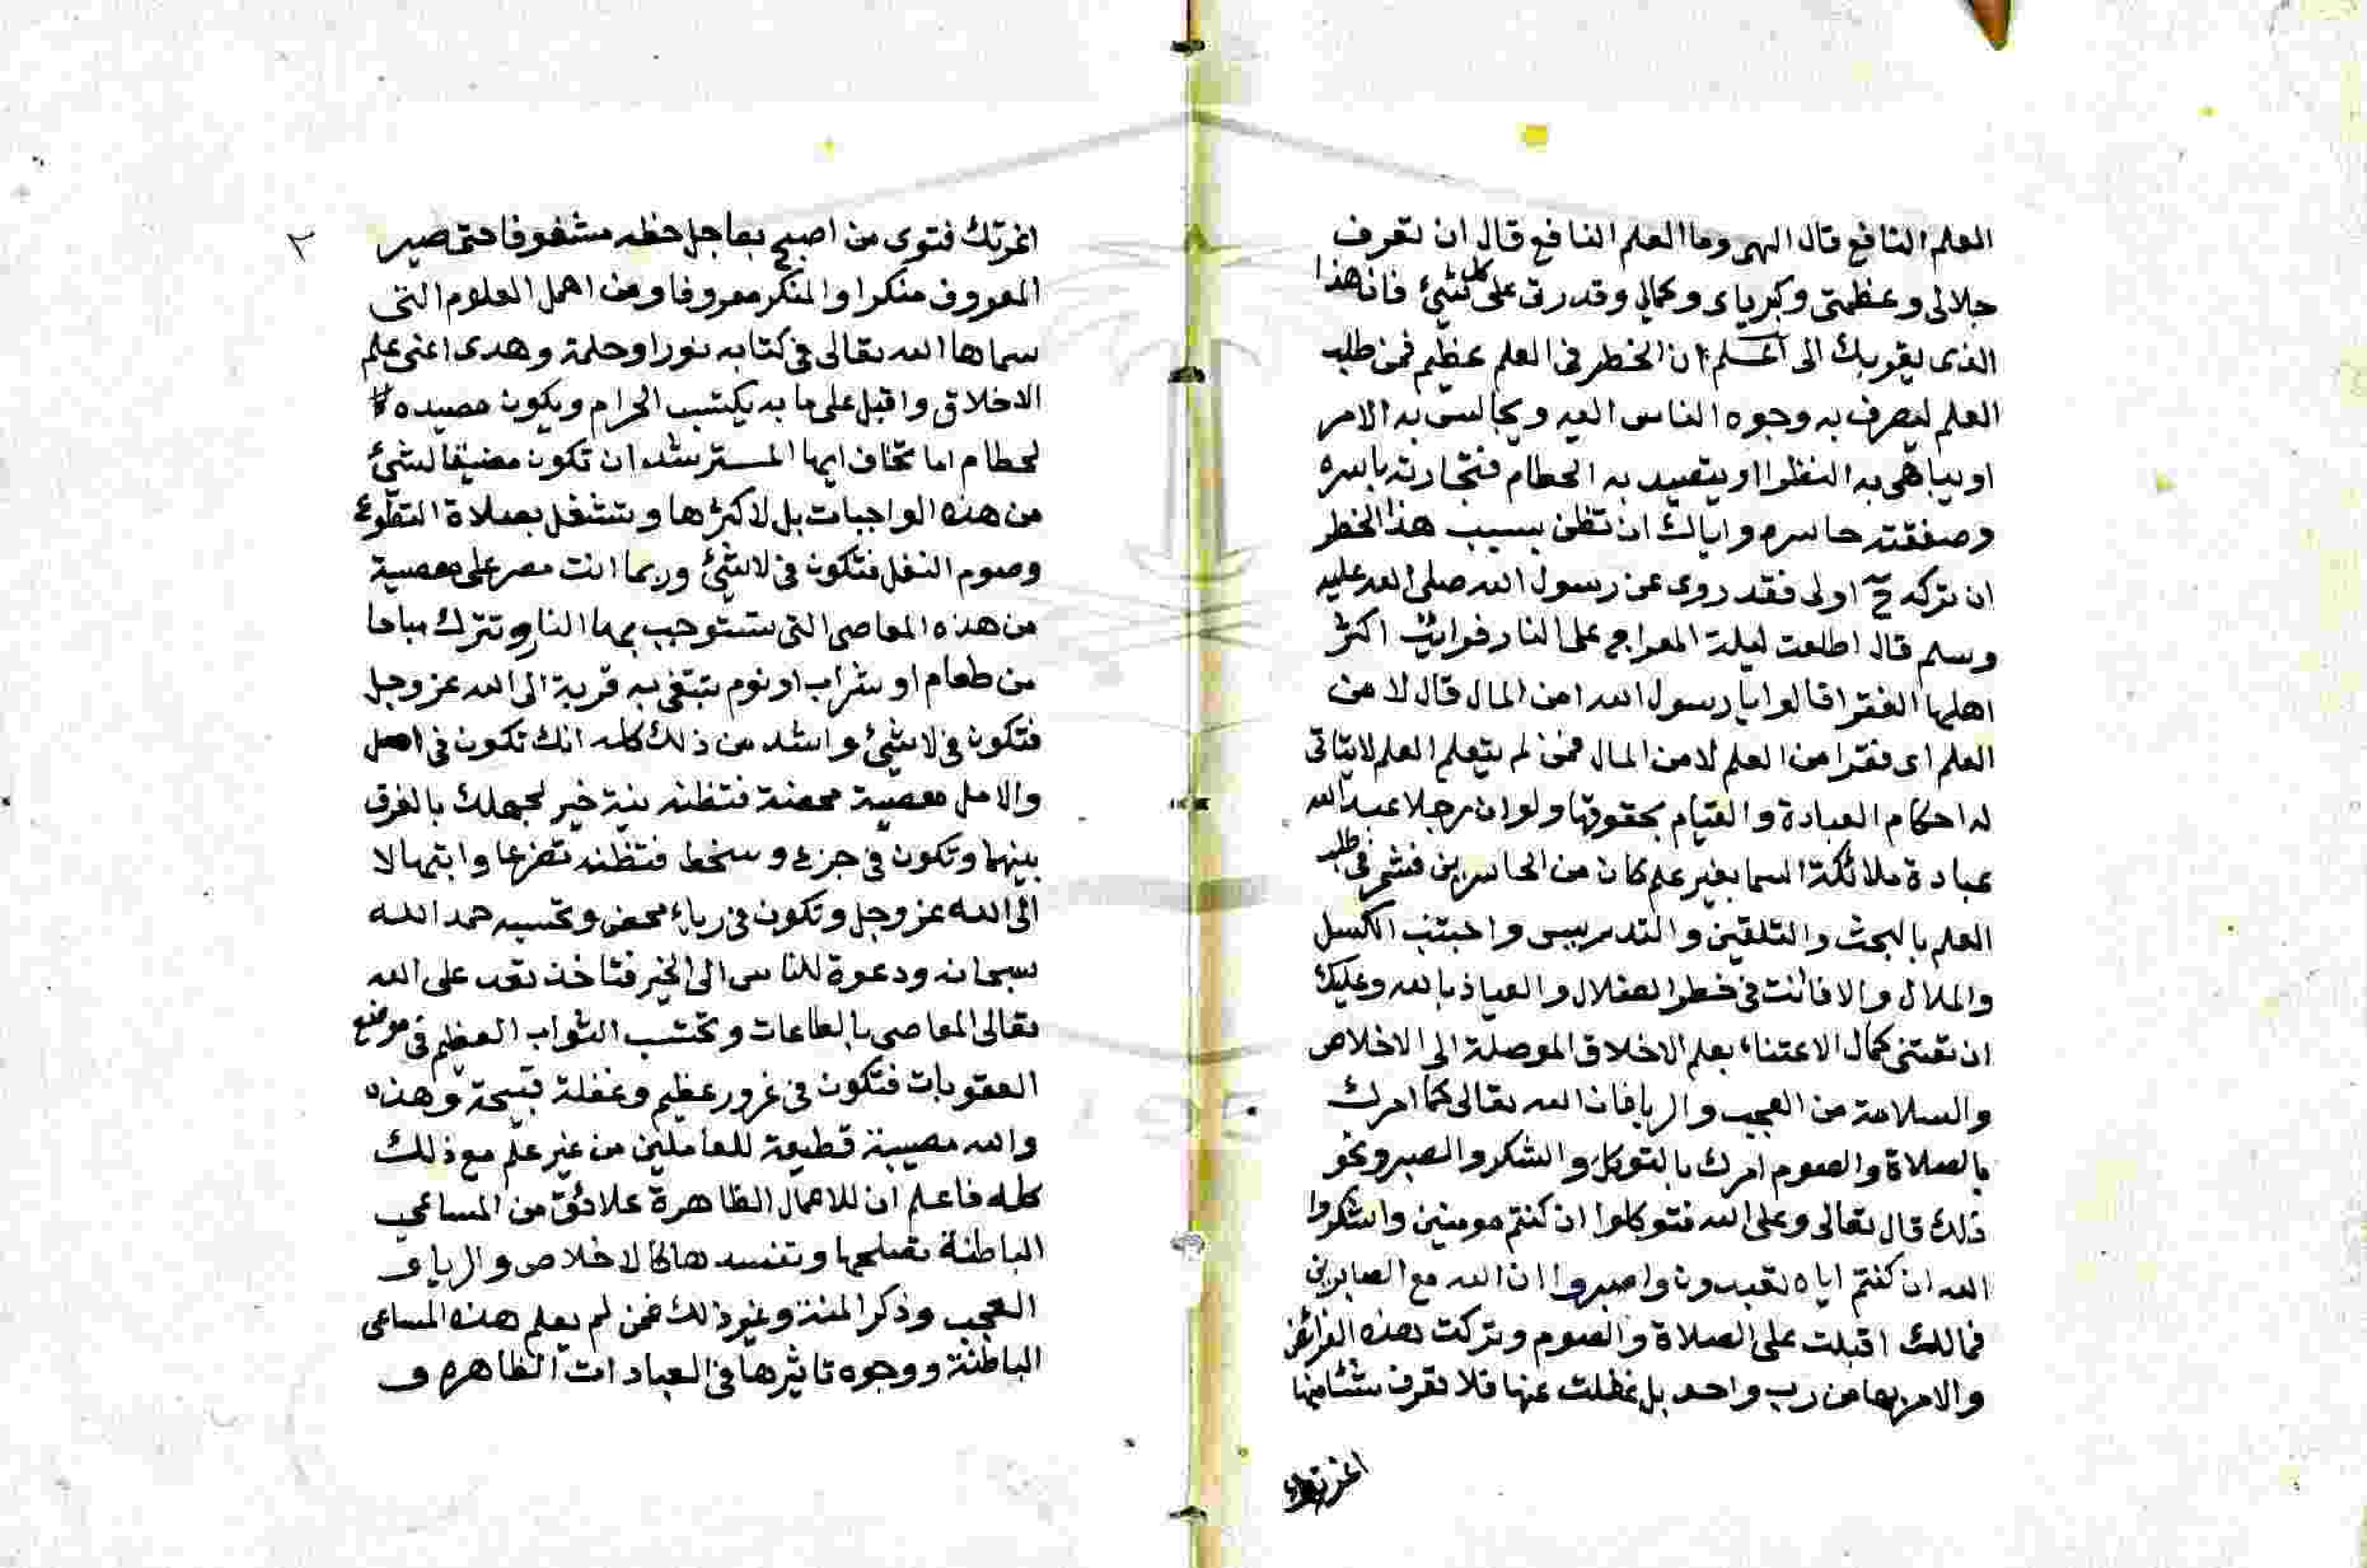 العلم النافع قال الهى وما العلم النافع قال ان تعرف
جلالى وعظمتى وكبرياى وكمالى وقدرتى على كل شيئ فان هذا
الذى يقربك الى اعلم ان الخطر فى العلم عظيم فمن طلب
العلم ليصرف به وجوه الناس اليه ويجالس به الامر
او يباهى به النظرا او يتصيد به الحطام فتجارته باسره
وصفقته خاسره واياك ان تظن بسبب هذا الخطر
ان تركه ح اولى فقد روى عن رسول الله صلى الله عليه
وسلم قال اطلعت ليلة المعراج على النار فرايت اكثر
اهلها الفقرا قالوا يا رسول الله امن المال قال لا من
العلم اى فقرا من العلم لا من المال فمن لم يتعلم العلم لا يتاتى
له احكام العبادة والقيام بحقوقها ولو ان رجلا عبد الله
عبادة ملائكة السما بغير علم كان من الخاسرين فشمر فى طلب
العلم بالبحث والتلقين والتدريس واجتنب الكسل
والملال والا فانت فى خطر الضلال والعياذ بالله وعليك
ان تعتنى كمال الاعتناء بعلم الاخلاق الموصلة الى الاخلاص
والسلامة من العجب والريا فان الله تعالى كما امرك
بالصلاة والصوم امرك بالتوكل والشكر والصبر ونحو
ذلك قال تعالى وعلى الله فتوكلوا ان كنتم مومنين واشكروا
الله ان كنتم اياه تعبدون واصبروا ان الله مع الصابرين
فمالك اقبلت على الصلاة والصوم وتركت هذه الفرائض
والامر بها من رب واحد بل غفلت عنها فلا تعرف شئا منها
اغرتك
٣
اغرتك فتوى من اصبح بعاجل حظه مشغوفا حتى صير
المعروف منكرا والمنكر معروفا ومن اهمل العلوم التى
سماها الله تعالى فى كتابه نورا وحكمة وهدى اعنى علم
الاخلاق واقبل على ما به يكتسب الحرام ويكون مصيده
لحطام اما تخاف ايها المسترشد ان تكون مضيقا لشئ
من هذه الواجبات بل لاكثرها وتشتغل بصلاة التطوع
وصوم النفل فتكون فى لاشئ وربما انت مصر على معصية
من هذه المعاصى التى تستوجب بها النار وتترك مباحا
من طعام او شراب او نوم تبتغى به قربة الى الله عز وجل
فتكون فى لاشئ واشد من ذلك كله انك تكون فى امل
والامل معصية محضة فتظنه نية خير لجهلك بالفرق
بينهما وتكون فى جزع وسخط فتظنه تضرعا وابتهالا
الى الله عز وجل وتكون فى رياء محض وتحسبه حمد الله
سبحانه ودعوة للناس الى الخير فتاخذ تعد على الله
تعالى المعاصى بالطاعات وتحتسب الثواب العظيم فى موضع
العقوبات فتكون فى غرور عظيم وغفلة قبيحة وهذه
والله مصيبة قطيعة للعاملين من غير علم مع ذلك
كله فاعلم ان للاعمال الظاهرة علائق من المساعى
الباطنة تصلحها وتفسدها كالاخلاص والريا و
العجب وذكر المنة وغير ذلك فمن لم يعلم هذه المساعى
الباطنة ووجوه تاثيرها فى العبادات الظاهره و